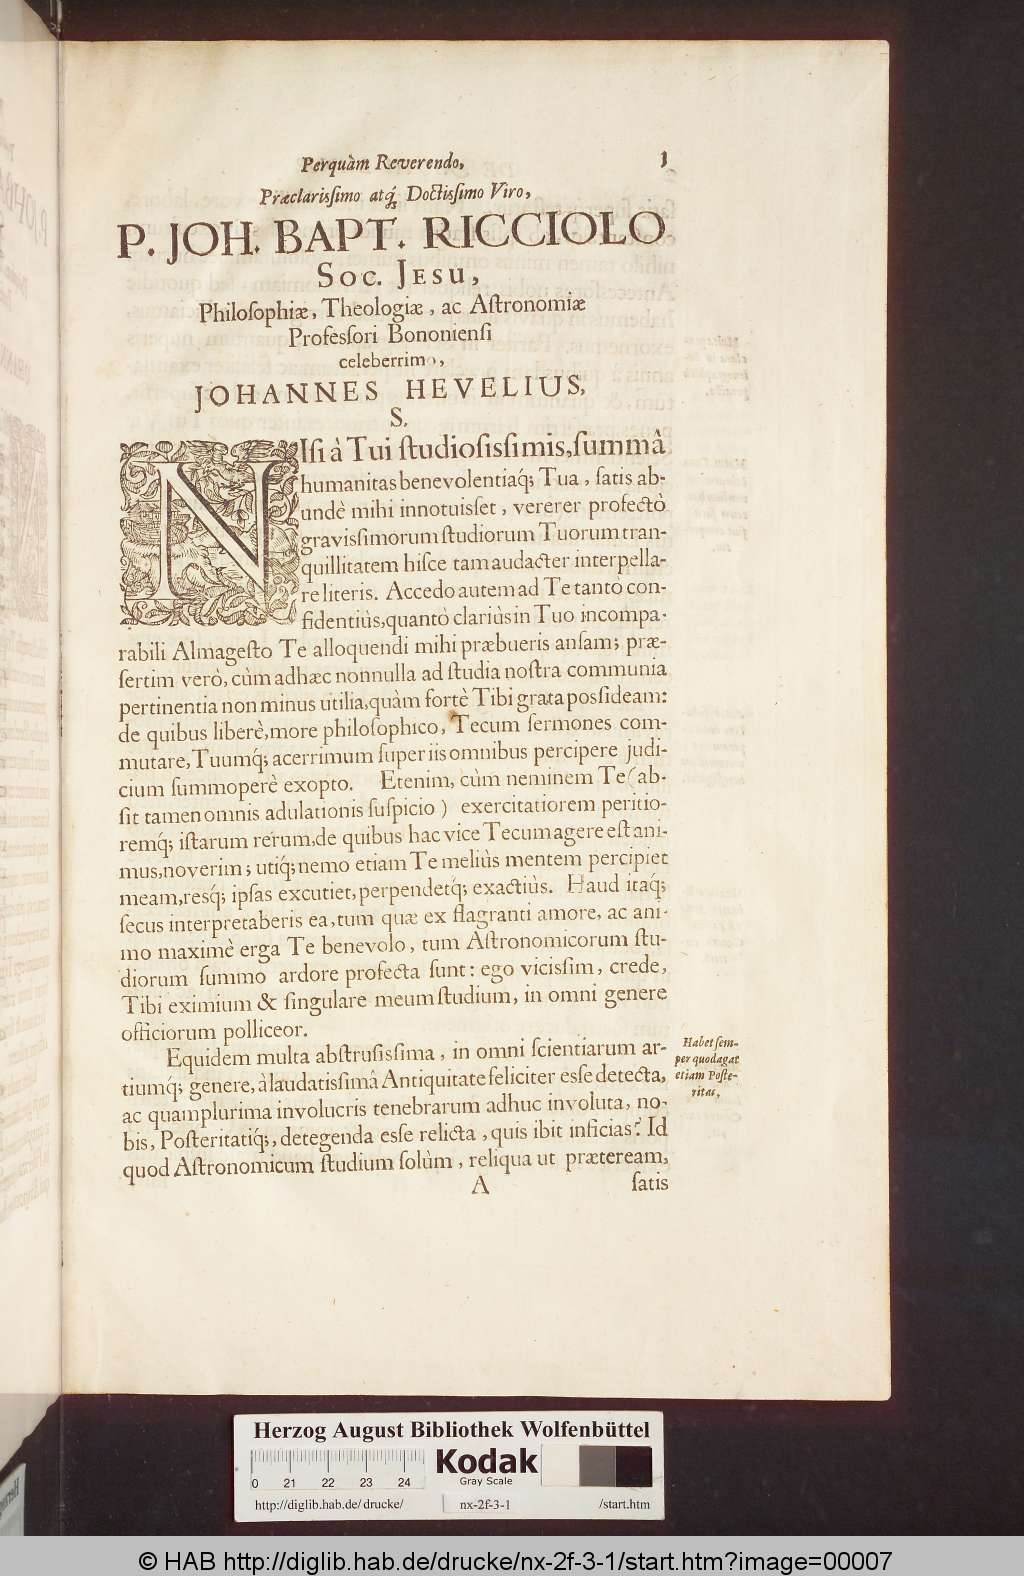 1
Perquàm Reverendo,
Præclarissimo atq́; Doctissimo Viro,
P. JOH. BAPT. RICCIOLO
Soc. Jesu,
Philoſophiæ, Theologiæ, ac Aſtronomiæ
Profeſſori Bononienſi
celeberrimo,
JOHANNES HEVELIUS,
S.
NIſi à Tui ſtudioſisſimis, ſummâ
humanitas benevolentiaq́; Tua, ſatis ab-
undè mihi innotuisſet, vererer profectò
gravisſimorum ſtudiorum Tuorum tran-
quillitatem hiſce tam audacter interpella-
re literis. Accedo autem ad Te tantò con-
fidentiùs, quantò clariùs in Tuo incompa-
rabili Almageſto Te alloquendi mihi præbueris anſam; præ-
ſertim verò, cùm adhæc nonnulla ad ſtudia noſtra communia
pertinentia non minus utilia, quàm fortè Tibi grata posſideam:
de quibus liberè, more philoſophico, Tecum ſermones com-
mutare, Tuumq́; acerrimum ſuper iis omnibus percipere judi-
cium ſummoperè exopto. Etenim, cùm neminem Te (ab-
ſit tamen omnis adulationis ſuſpicio) exercitatiorem peritio-
remq́; iſtarum rerum, de quibus hac vice Tecum agere eſt ani-
mus, noverim; utiq́; nemo etiam Te meliùs mentem percipiet
meam, resq́; ipſas excutiet, perpendetq́; exactiùs. Haud itaq́;
ſecus interpretaberis ea, tum quæ ex flagranti amore, ac ani-
mo maximè erga Te benevolo, tum Aſtronomicorum ſtu-
diorum ſummo ardore profecta ſunt: ego vicisſim, crede,
Tibi eximium & ſingulare meum ſtudium, in omni genere
officiorum polliceor.
Equidem multa abſtruſisſima, in omni ſcientiarum ar-
tiumq́; genere, à laudatisſimâ Antiquitate feliciter esſe detecta,
ac quamplurima involucris tenebrarum adhuc involuta, no-
bis, Poſteritatiq́;, detegenda esſe relicta, quis ibit inficias? Id
quod Aſtronomicum ſtudium ſolùm, reliqua ut præteream,
A ſatis
Habet ſem-
per quod agat
etiam Poſte-
ritas,
Herzog August Bibliothek Wolfenbüttel
0 21 22 23 24
Kodak
Gray Scale
http://diglib.hab.de/drucke/ nx-2f-3-1 /start.htm
© HAB http://diglib.hab.de/drucke/nx-2f-3-1/start.htm?image=00007